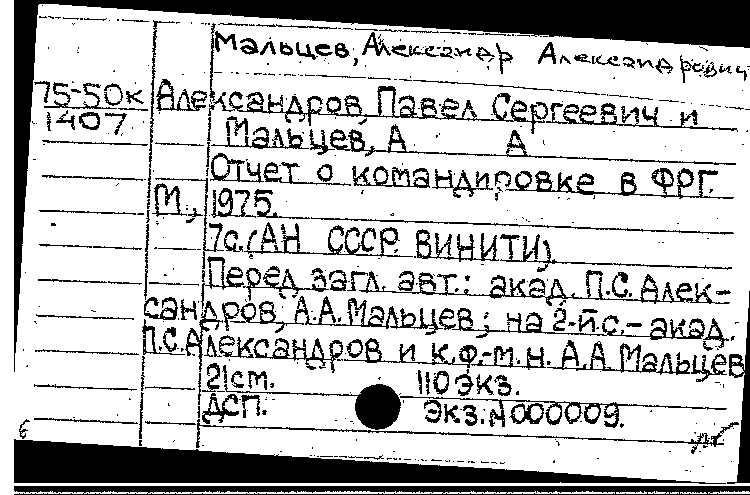 Мальцев, Александр Александрович
75-50к Александров, Павел Сергеевич и
1407 Мальцев, А А
Отчет о командировке в ФРГ.
М., 1975.
7с. (АН СССР. ВИНИТИ).
Перед загл. авт.: акад. П.С. Алек-
сандров, А.А. Мальцев; на 2-й с. – акад.
П.С. Александров и к.ф.-м.н. А.А. Мальцев
21 см. 110 экз.
ДСП. Экз. № 000009.